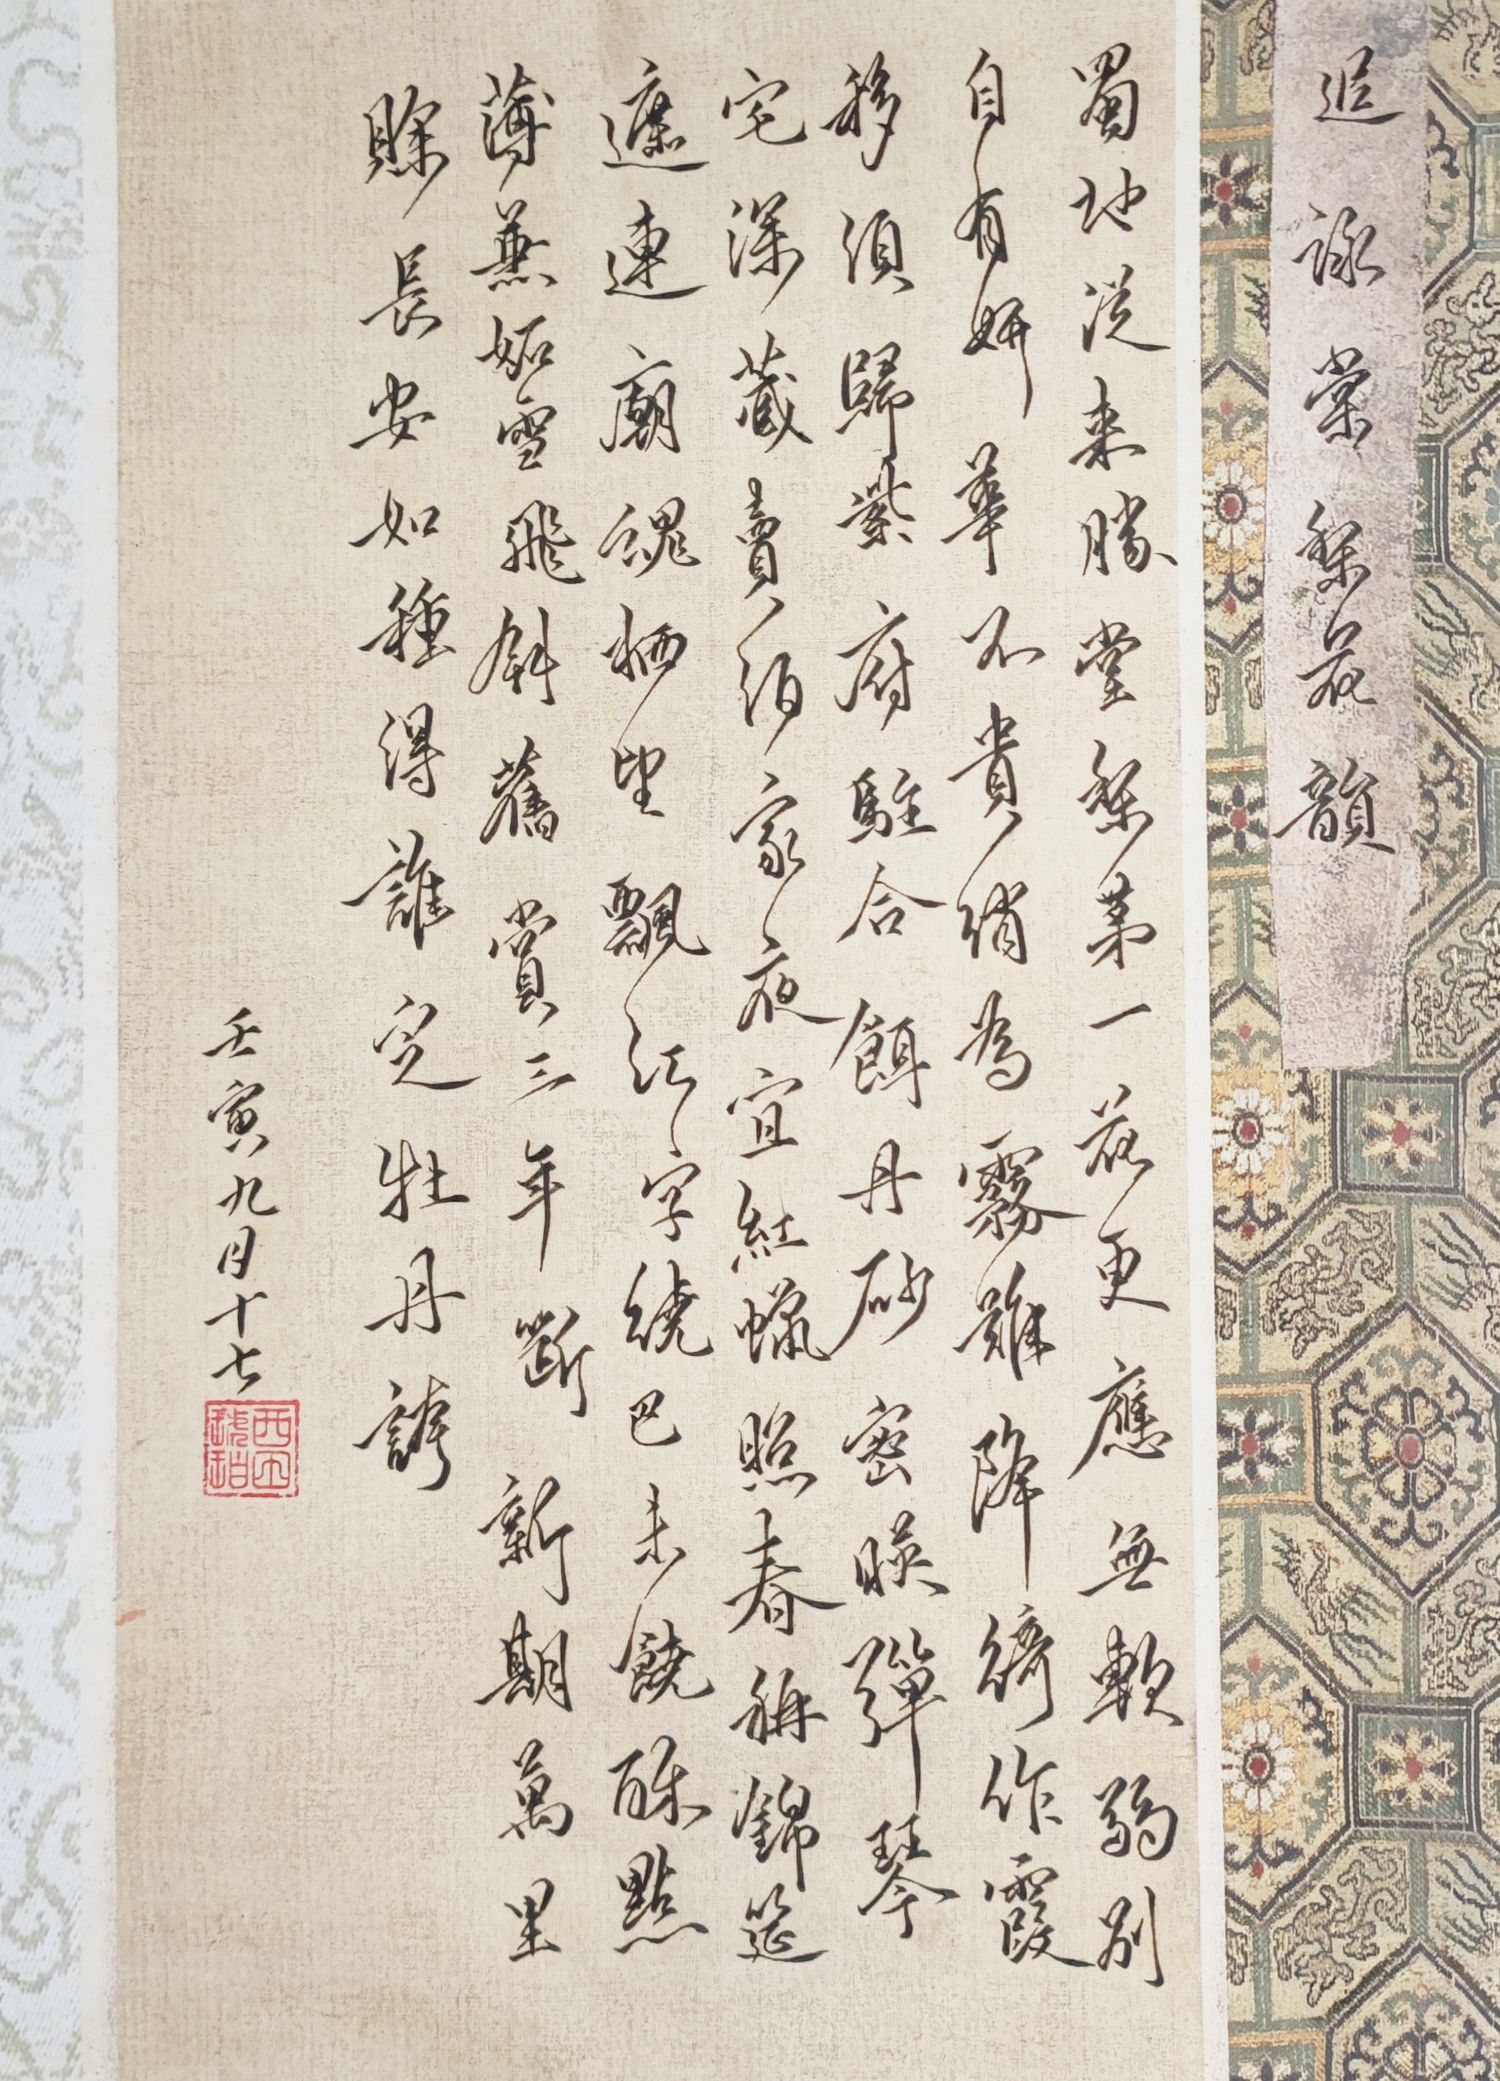 追詠棠梨花韻
蜀地從来勝棠梨第一花更應無軟弱别
自有妍華不貴綃為霧難降綺作霞
移須歸紫府駐合餌丹砂密映彈琴
宅深藏賣酒家夜宜紅蠟照春稱錦筵
遮連廟魂栖望飄江字繞巴未饒酥點
薄兼妬雪飛斜舊賞三年斷新期萬里
賒長安如種得誰定牡丹誇
壬寅九月十七